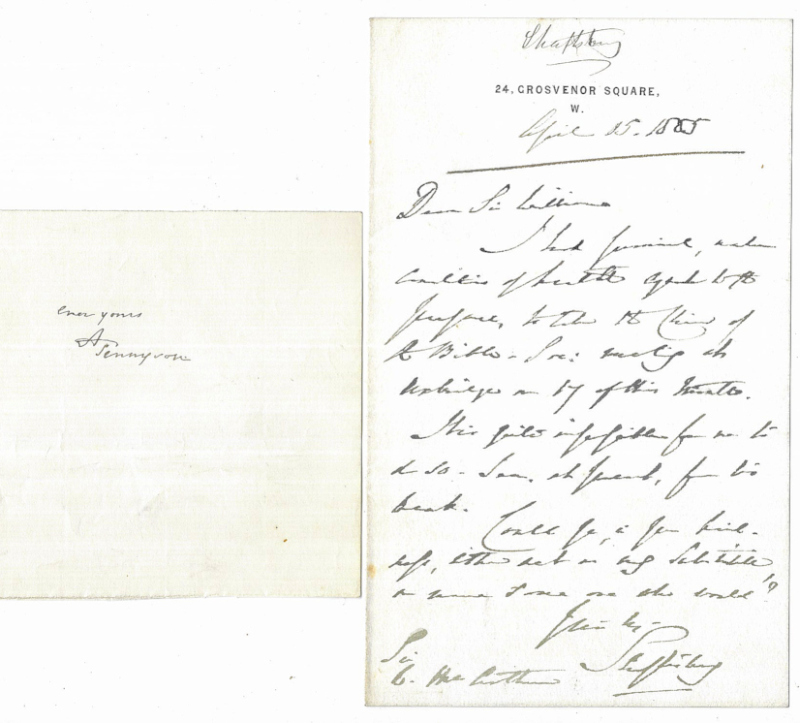 ever yours
A Tennyson
Shaftsbury
24, GROSVENOR SQUARE,
W.
April 15. 1885
Dear Sir William
I had promised, under
conditions of health equal to the
purpose, to take the Chair of
the Bible-Soc: meeting at
Uxbridge on 17 of this Month.
It is quite impossible for me to
do so - I am, at present, far too
weak.
Could you, in your kind-
ness, either act as my Substitute,
or name some one who would?
Yours tr-
Shaftesbury
Sir
W. McArthur